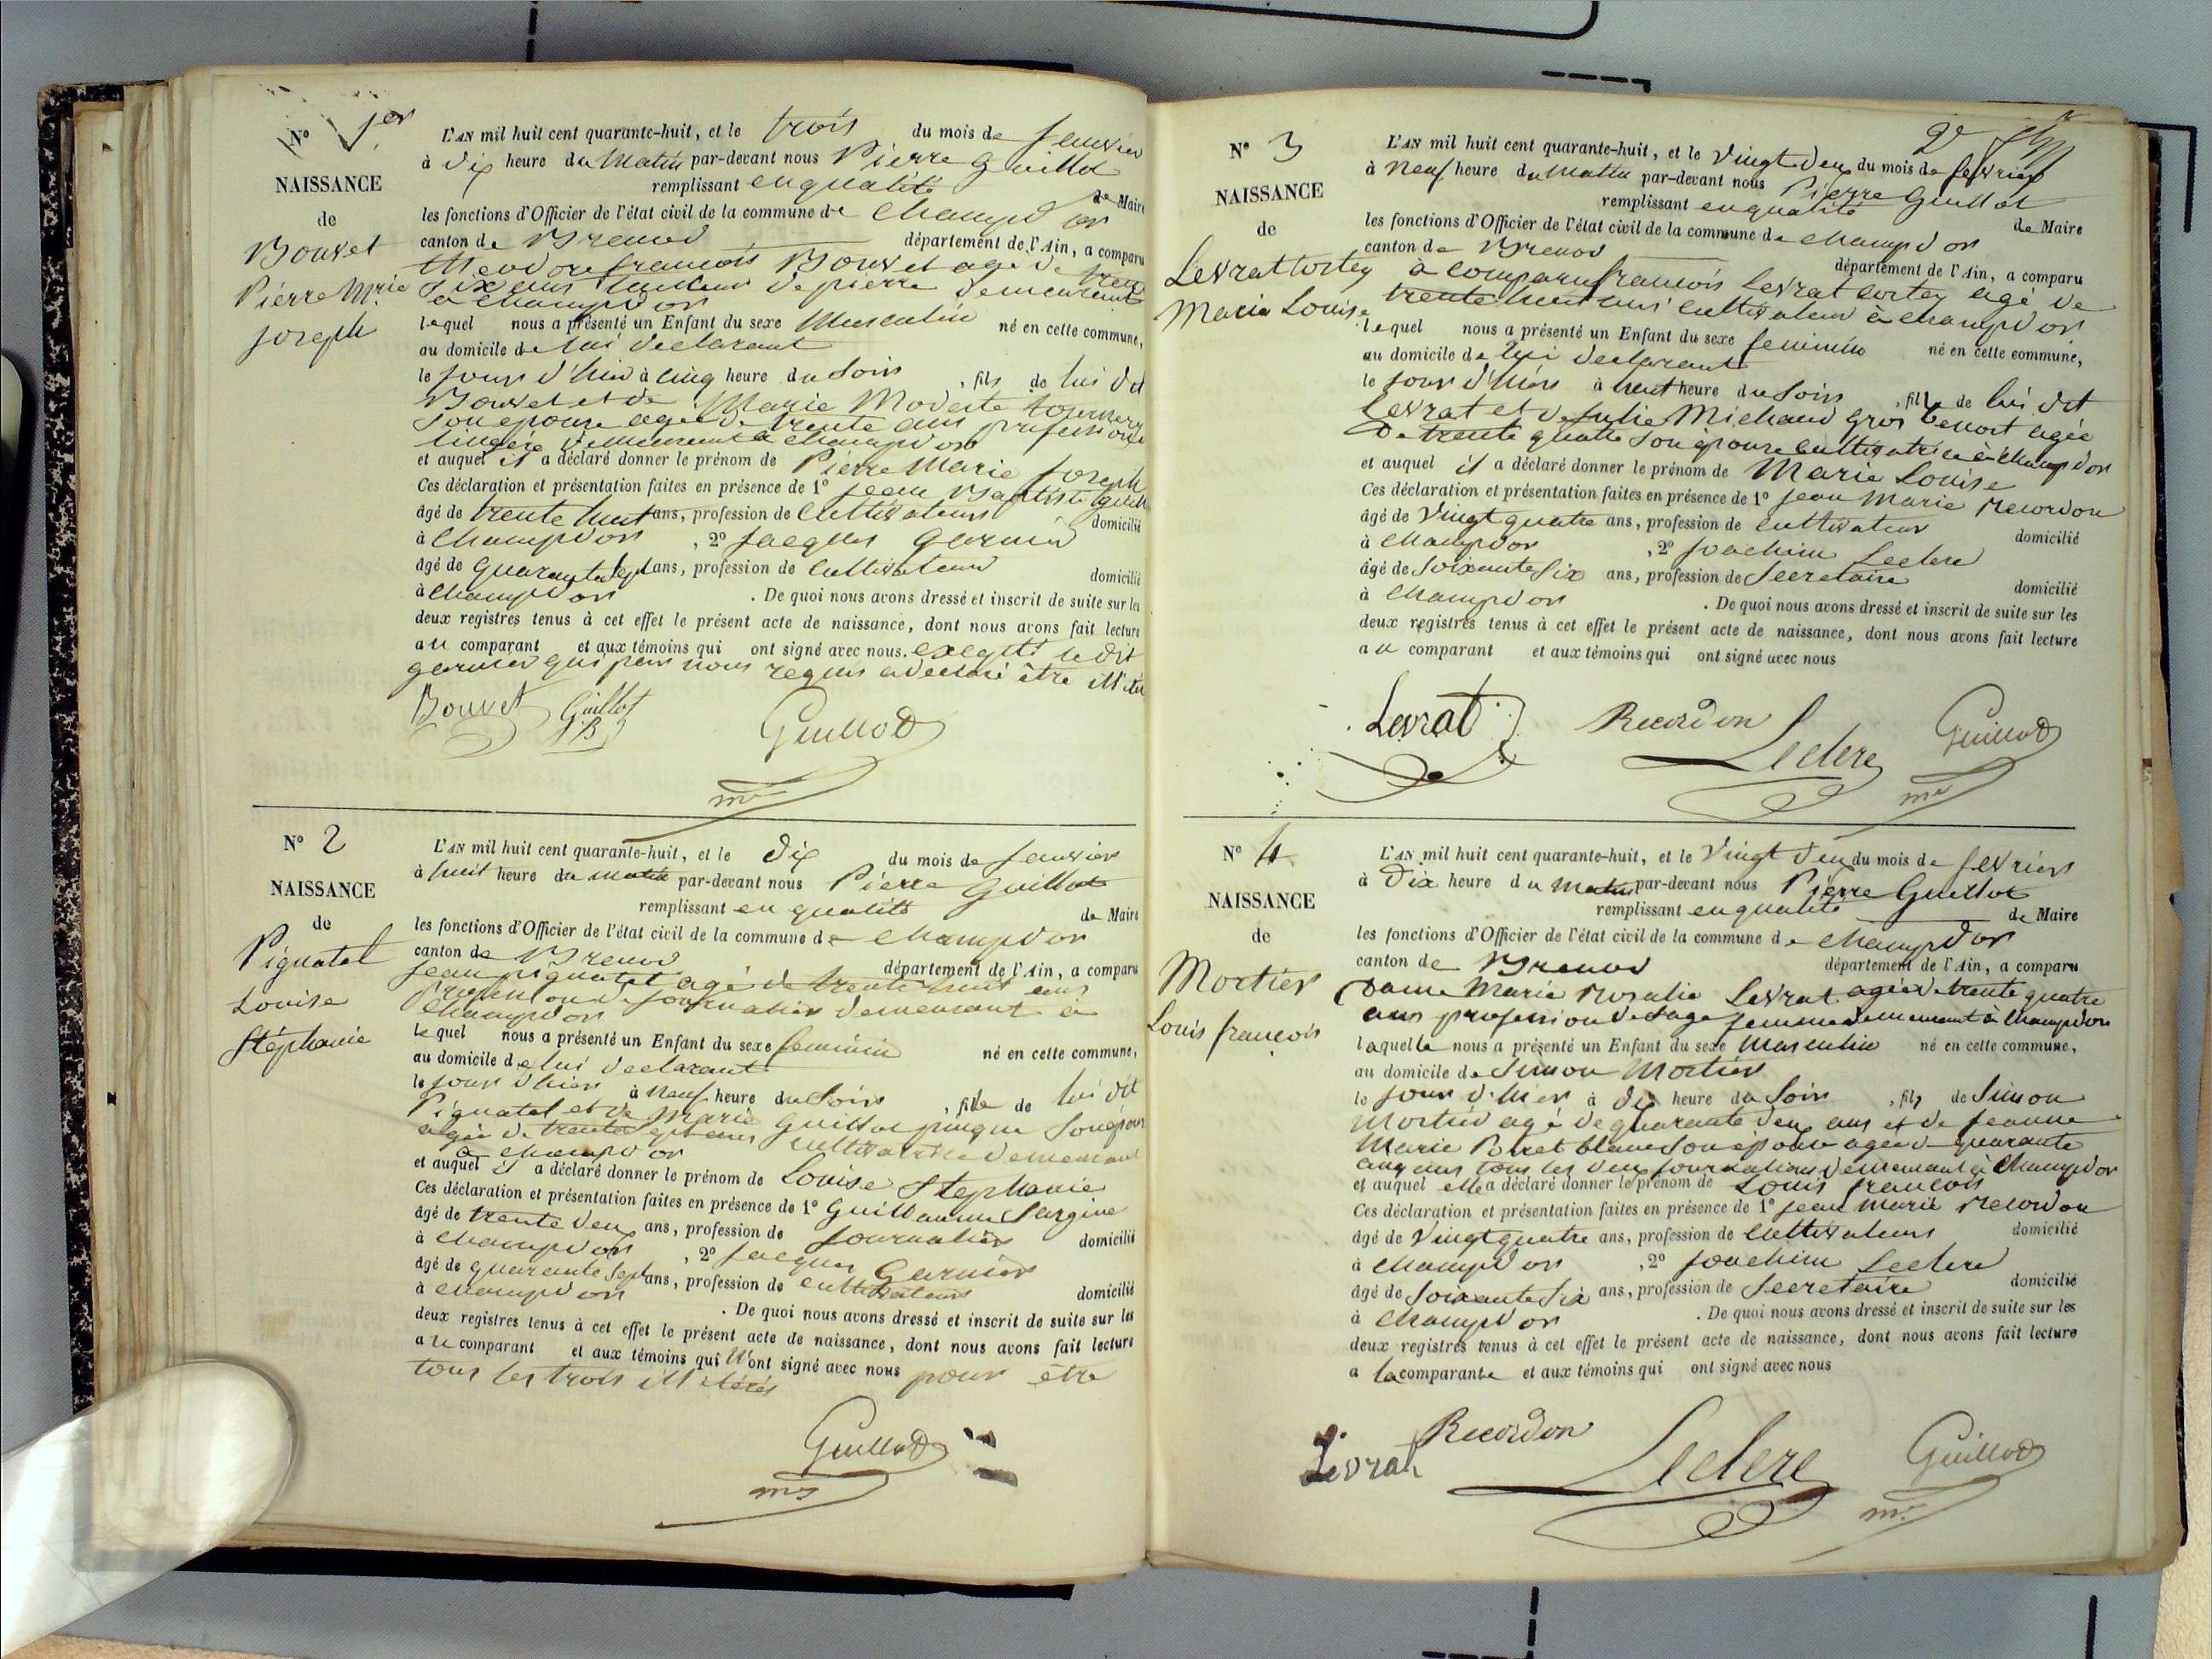 N° 1er
NAISSANCE
de
Bouvet
Pierre Mrie
Joseph
L'AN mil huit cent quarante-huit, et le trois du mois de janvier
à dix heure du matin par-devant nous Pierre Guillot
remplissant en qualité de Maire
les fonctions d'Officier de l'état civil de la commune de Champdor
canton de Brenod département de l'Ain, a comparu
théodore francois Bouvet agé de trente
six ans tailleur de pierre demeurant
à champdor
lequel nous a présenté un Enfant du sexe Masculin né en cette commune,
au domicile de lui declarant
le jour d'hier à cinq heure du soir, fils de lui dit
Bouvet et de Marie Modeste
son epouse agée de trente ans profession de
lingère demeurant à champdor
et auquel il a déclaré donner le prénom de Pierre Marie Joseph
Ces déclaration et présentation faites en présence de 1° jean Baptiste Guillot
âgé de trente huit ans, profession de Cultivateur domicilié
à Champdor, 2° Jacques Garnier
âgé de quarante sept ans, profession de Cultivateur domicilié
à Champdor. De quoi nous avons dressé et inscrit de suite sur les
deux registres tenus à cet effet le présent acte de naissance, dont nous avons fait lecture
au comparant et aux témoins qui ont signé avec nous. excepté le dit
garnier qui par nous requis a declaré être illitéré
Bouvet Guillot JB Guillot
mre
N° 2
NAISSANCE
de
Piguatel
Louise
Stéphanie
L'AN mil huit cent quarante-huit, et le dix du mois de janvier
à huit heure du matin par-devant nous Pierre Guillot
remplissant en qualité de Maire
les fonctions d'Officier de l'état civil de la commune de Champdor
canton de Brenod département de l'Ain, a comparu
jean piguatel agé de trente huit ans
profession de journalier demeurant à
Champdor
lequel nous a présenté un Enfant du sexe feminin né en cette commune,
au domicile de lui declarant
le jour d'hier à neuf heure du soir, fille de lui dit
Piguatel et de Marie Guillot pingue son épouse
agée de trente sept ans cultivatrice demeurant
à champdor
et auquel il a déclaré donner le prénom de Louise Stephanie
Ces déclaration et présentation faites en présence de 1° Guillaume Sargine
âgé de trente deux ans, profession de journalier domicilié
à Champdor, 2° Jacques Garnier
âgé de quarante sept ans, profession de cultivateur domicilié
à champdor. De quoi nous avons dressé et inscrit de suite sur les
deux registres tenus à cet effet le présent acte de naissance, dont nous avons fait lecture
au comparant et aux témoins qui n'ont signé avec nous pour être
tous les trois illitérés
Guillot
mre
2e
N° 3
NAISSANCE
de
Levrat tortey
Marie Louise
L'AN mil huit cent quarante-huit, et le Vingt deux du mois de fevrier
à Neuf heure du matin par-devant nous Pierre Guillot
remplissant en qualité de Maire
les fonctions d'Officier de l'état civil de la commune de Champdor
canton de Brenod département de l'Ain, a comparu
à comparu francois Levrat tortey agé de
trente huit ans cultivateur à champdor
lequel nous a présenté un Enfant du sexe feminin né en cette commune,
au domicile de lui declarant
le jour d'hier à huit heure du soir, fille de lui dit
Levrat et de Julie Michaud Gros Benoit agée
de trente quatre son épouse cultivatrice à champdor
et auquel il a déclaré donner le prénom de Marie Louise
Ces déclaration et présentation faites en présence de 1° jean Marie Recordon
âgé de Vingt quatre ans, profession de Cultivateur domicilié
à Champdor, 2° Joachim Leclere
âgé de Soixante six ans, profession de Secretaire domicilié
à Champdor. De quoi nous avons dressé et inscrit de suite sur les
deux registres tenus à cet effet le présent acte de naissance, dont nous avons fait lecture
au comparant et aux témoins qui ont signé avec nous
Levrat Recordon Leclere Guillot
mre
N° 4
NAISSANCE
de
Mortier
Louis françois
L'AN mil huit cent quarante-huit, et le Vingt deux du mois de fevrier
à Dix heure du matin par-devant nous Pierre Guillot
remplissant en qualité de Maire
les fonctions d'Officier de l'état civil de la commune de Champdor
canton de Brenod département de l'Ain, a comparu
Dame Marie Rosalie Levrat agée de trente quatre
ans profession de sage femme demeurant à Champdor
laquelle nous a présenté un Enfant du sexe Masculin né en cette commune,
au domicile de Simon Mortier
le jour d'hier à dix heure du soir, fils de Simon
Mortier agé de quarante deux ans et de Jeanne
Marie Biret blanc son épouse agée de quarante
cinq ans tous les deux journaliers demeurant à Champdor
et auquel elle a déclaré donner le prénom de Louis francois
Ces déclaration et présentation faites en présence de 1° jean Marie Recordon
âgé de Vingt quatre ans, profession de Cultivateur domicilié
à Champdor, 2° Joachim Leclere
âgé de Soixante Six ans, profession de Secretaire domicilié
à Champdor. De quoi nous avons dressé et inscrit de suite sur les
deux registres tenus à cet effet le présent acte de naissance, dont nous avons fait lecture
a la comparante et aux témoins qui ont signé avec nous
Levrat Recordon Leclere Guillot
mre